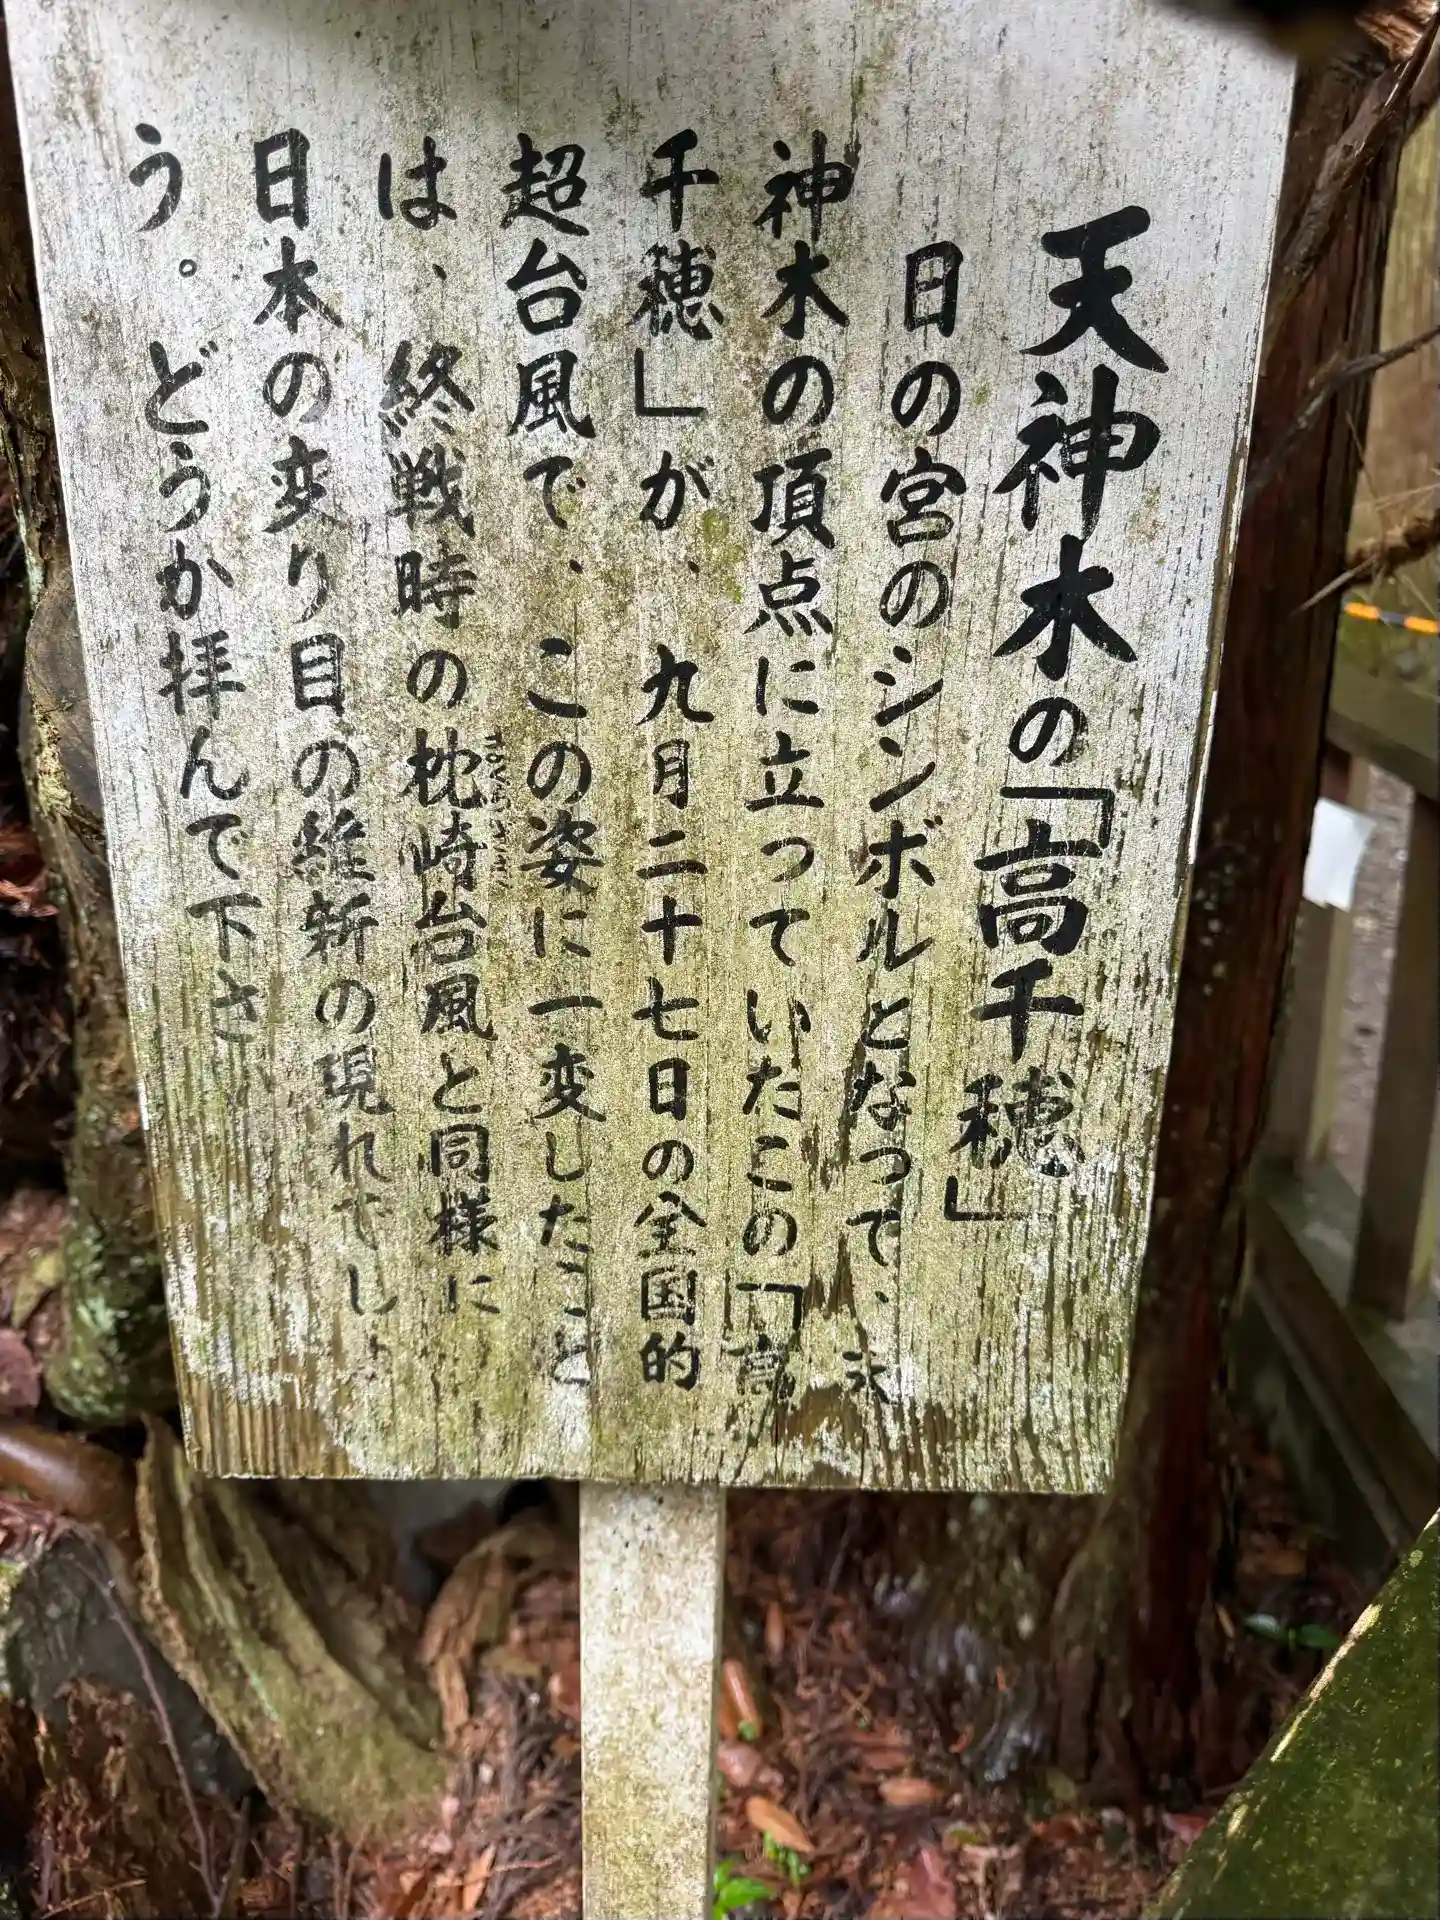 天神木の「高千穂」
日の宮のシンボルとなって、天
神木の頂点に立っていたこの「高
千穂」が、九月二十七日の全国的
超台風で、この姿に一変したこと
は、終戦時の枕崎台風と同様に
まくらざき
日本の変り目の維新の現れでしょ
う。どうか拝んで下さい